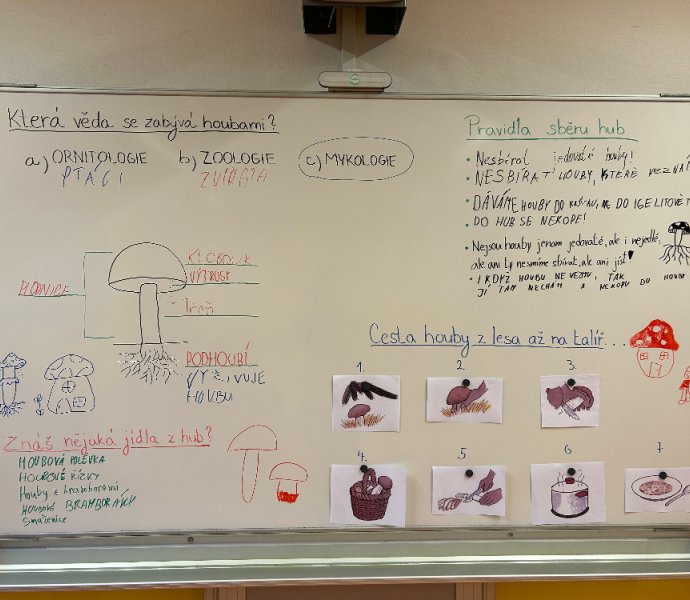 Která věda se zabývá houbami?
a) ORNITOLOGIE b) ZOOLOGIE c) MYKOLOGIE
PTÁCI ZVÍŘATA
PLODNICE
KLOBOUK
VÝTRUSY
Třeň
PODHOUBÍ
VYŽIVUJE
HOUBU
Znáš nějaká jídla z hub?
HOUBOVÁ POLÉVKA
HOUBOVÉ ŘÍZKY
Houby s bramborami
HOUBOVÉ BRAMBORÁKY
Smaženice
Pravidla sběru hub
• Nesbírat jedovaté houby!
• NESBÍRAT HOUBY, KTERÉ NEZNÁ
• DÁVÁME HOUBY DO KOŠÍKU, NE DO IGELITOVÉ T
• DO HUB SE NEKOPE!
• Nejsou houby jenom jedovaté, ale i nejedlé,
ale ani ty nesmíme sbírat, ale ani jíst!
• I KDYŽ HOUBU NEVEZMU, TAK
JÍ TAM NECHÁM A NEKOPU DO HOUBY
Cesta houby z lesa až na talíř...
1. 2. 3.
4. 5. 6 7.